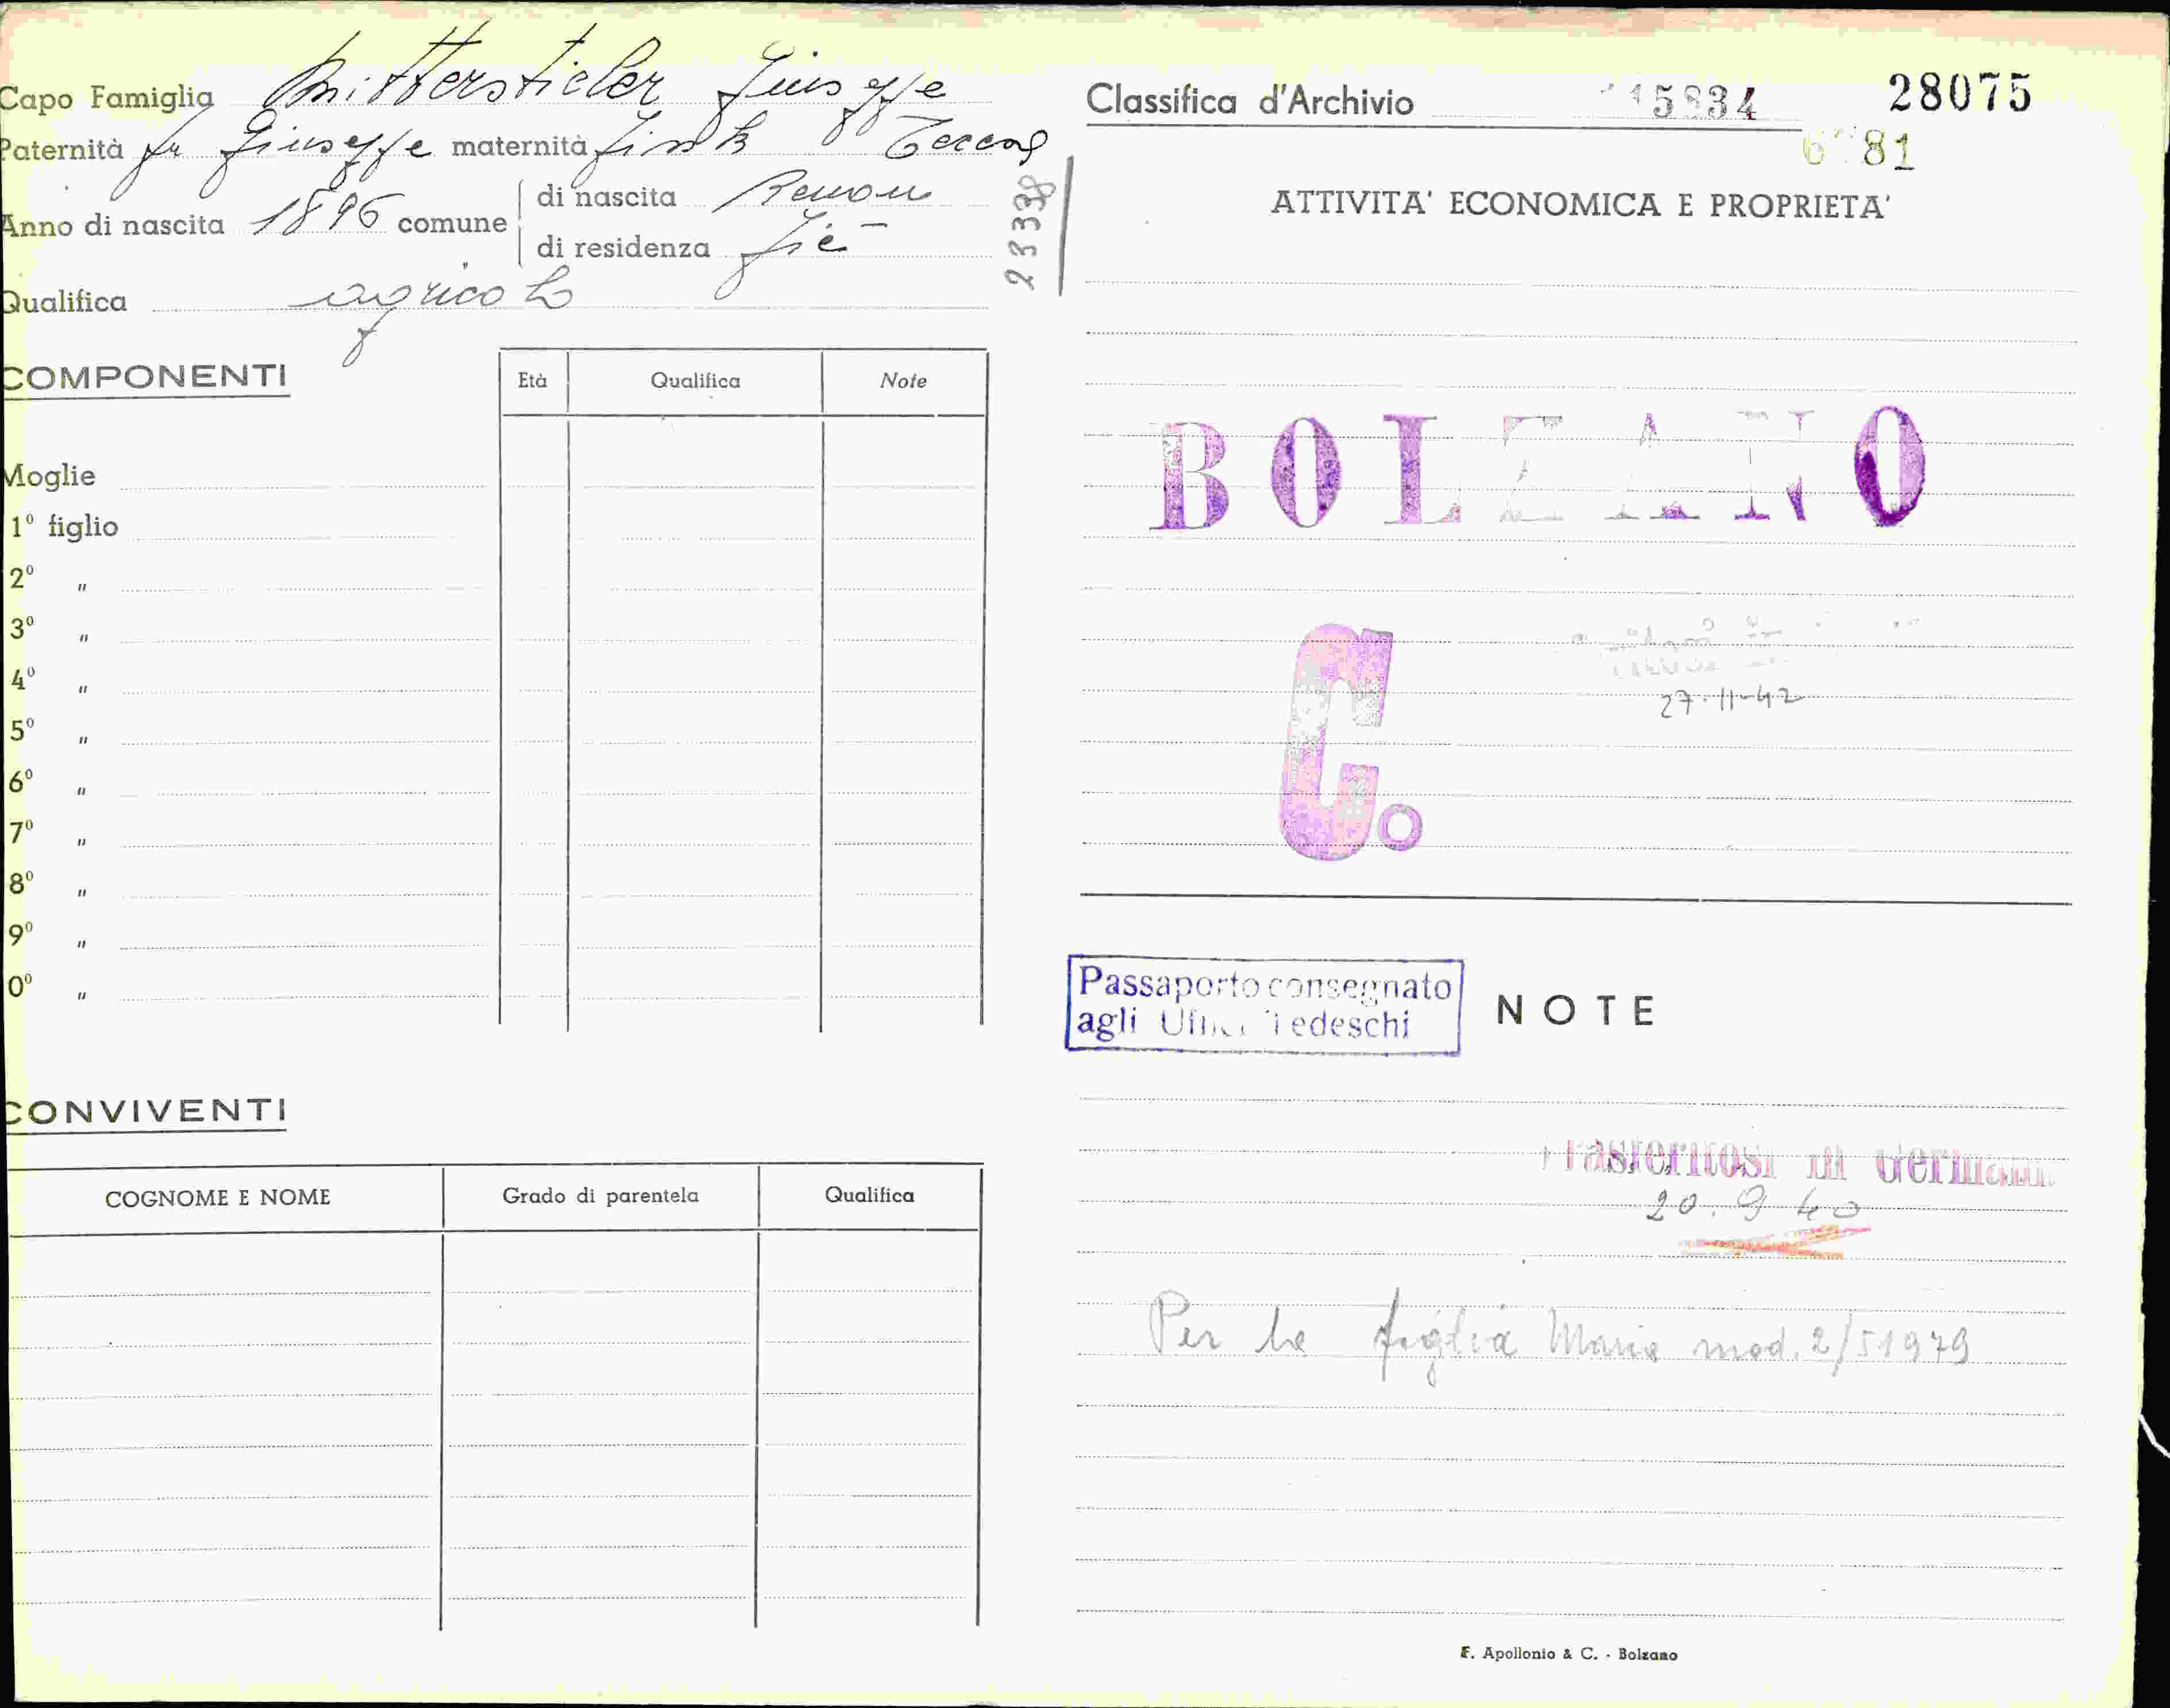 Capo Famiglia Mittersteler Giuseppe
Paternità fu Giuseppe maternità
Anno di nascita 1896 comune
di nascita Renon
di residenza Fiè
Qualifica agricolo
COMPONENTI
Età Qualifica Note
Moglie
1º figlio
2º "
3º "
4º "
5º "
6º "
7º "
8º "
9º "
0º "
CONVIVENTI
COGNOME E NOME Grado di parentela Qualifica
23338
Classifica d'Archivio 15834 28075
81
ATTIVITA' ECONOMICA E PROPRIETA'
BOLZANO
C.
27-11-42
Passaporto consegnato
agli Uffici Tedeschi
NOTE
Trasferitosi in Germania
20.9.40
Per la figlia Maria mod. 2/51979
F. Apollonio & C. - Bolzano